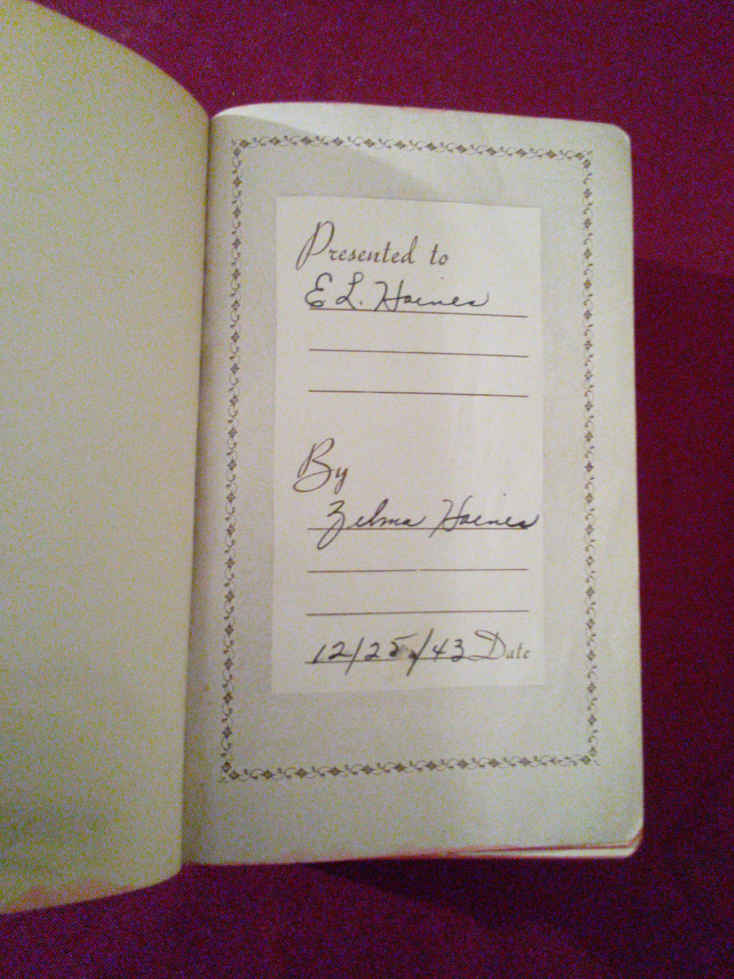 Presented to
E L. Haines
By
Zelma Haines
12/25/43 Date